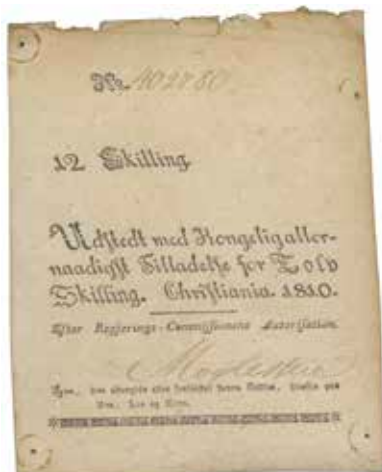 No. 402780
12 Skilling
Udstedt med Kongelig aller-
naadigst Tilladelse for Tolv
Skilling. Christiania. 1810.
Efter Regjerings-Commissionens Autorisation.